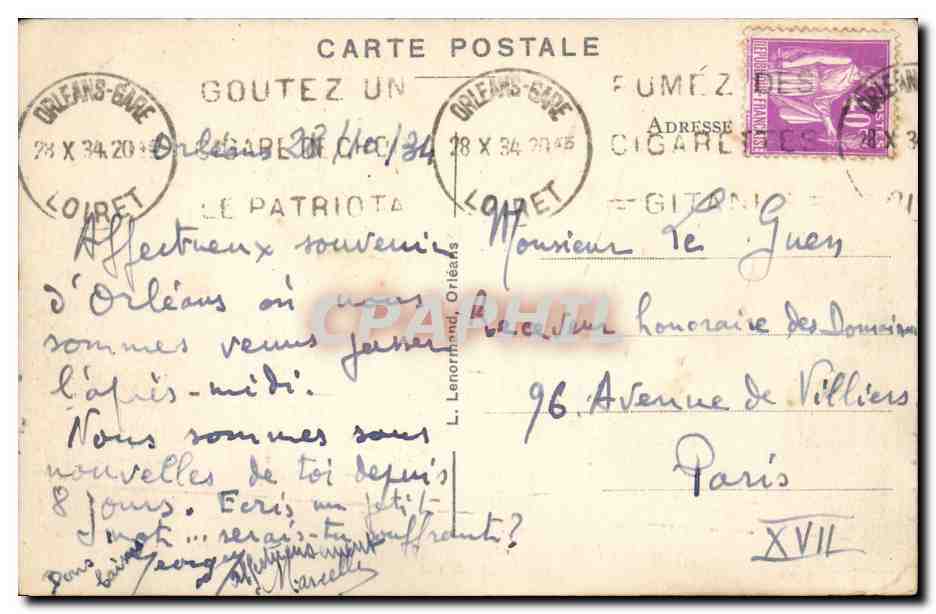 CARTE POSTALE
ORLEANS-GARE
28 X 34.20 45
LOIRET
GOUTEZ UN
CIGARE DE CHOC
LE PATRIOTA
ORLEANS-GARE
28 X 34 20 45
LOIRET
FUMEZ DES
CIGARETTES
= GITANES =
ADRESSE
Orléans 28/10/34
Affectueux souvenir
d'Orléans où nous
sommes venus passer
l'après-midi.
Nous sommes sans
nouvelles de toi depuis
8 jours. Ecris un petit
mot... serais-tu souffrante?
Bons baisers
Georges
Affectueusement
Marcelle
L. Lenormand, Orléans
CPAPHIL
Monsieur Le Guen
Receveur honoraire des Domaines
96. Avenue de Villiers
Paris
XVII